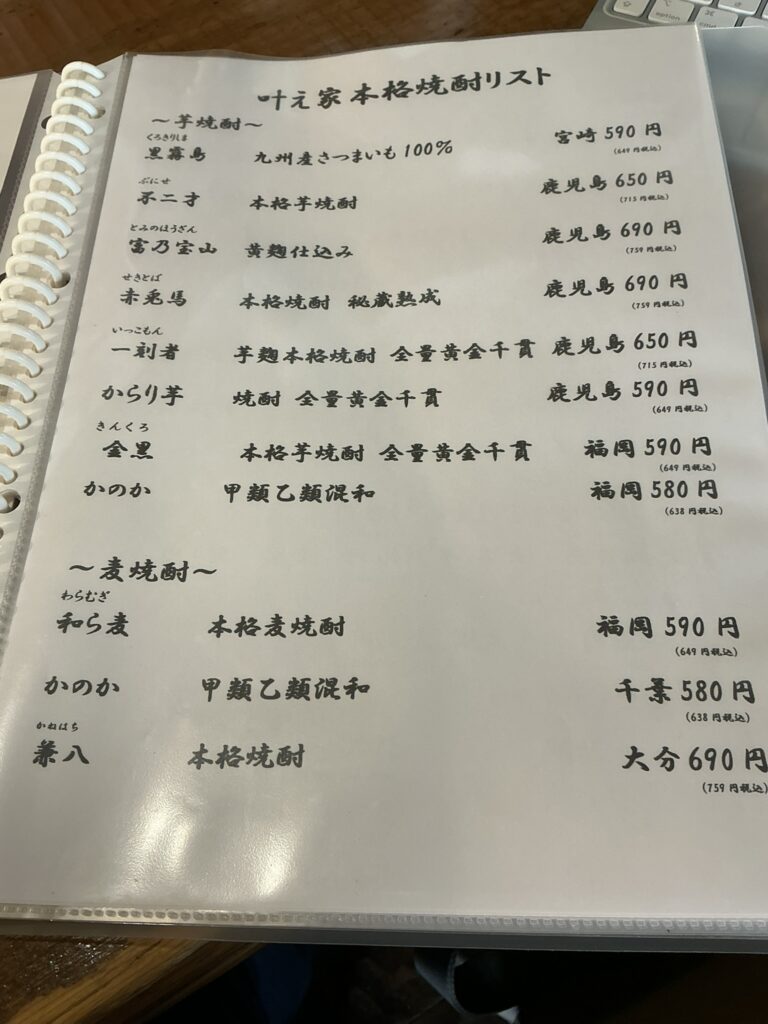 叶え家 本格焼酎リスト
～芋焼酎～
くろきりしま
黒霧島 九州産さつまいも100% 宮崎 590円
(649円税込)
ぶにせ
不二才 本格芋焼酎 鹿児島 650円
(715円税込)
とみのほうざん
富乃宝山 黄麹仕込み 鹿児島 690円
(759円税込)
せきとば
赤兎馬 本格焼酎 秘蔵熟成 鹿児島 690円
(759円税込)
いっこもん
一刻者 芋麹本格焼酎 全量黄金千貫 鹿児島 650円
(715円税込)
からり芋 焼酎 全量黄金千貫 鹿児島 590円
(649円税込)
きんくろ
金黒 本格芋焼酎 全量黄金千貫 福岡 590円
(649円税込)
かのか 甲類乙類混和 福岡 580円
(638円税込)
～麦焼酎～
わらむぎ
和ら麦 本格麦焼酎 福岡 590円
(649円税込)
かのか 甲類乙類混和 千葉 580円
(638円税込)
かねはち
兼八 本格焼酎 大分 690円
(759円税込)
option